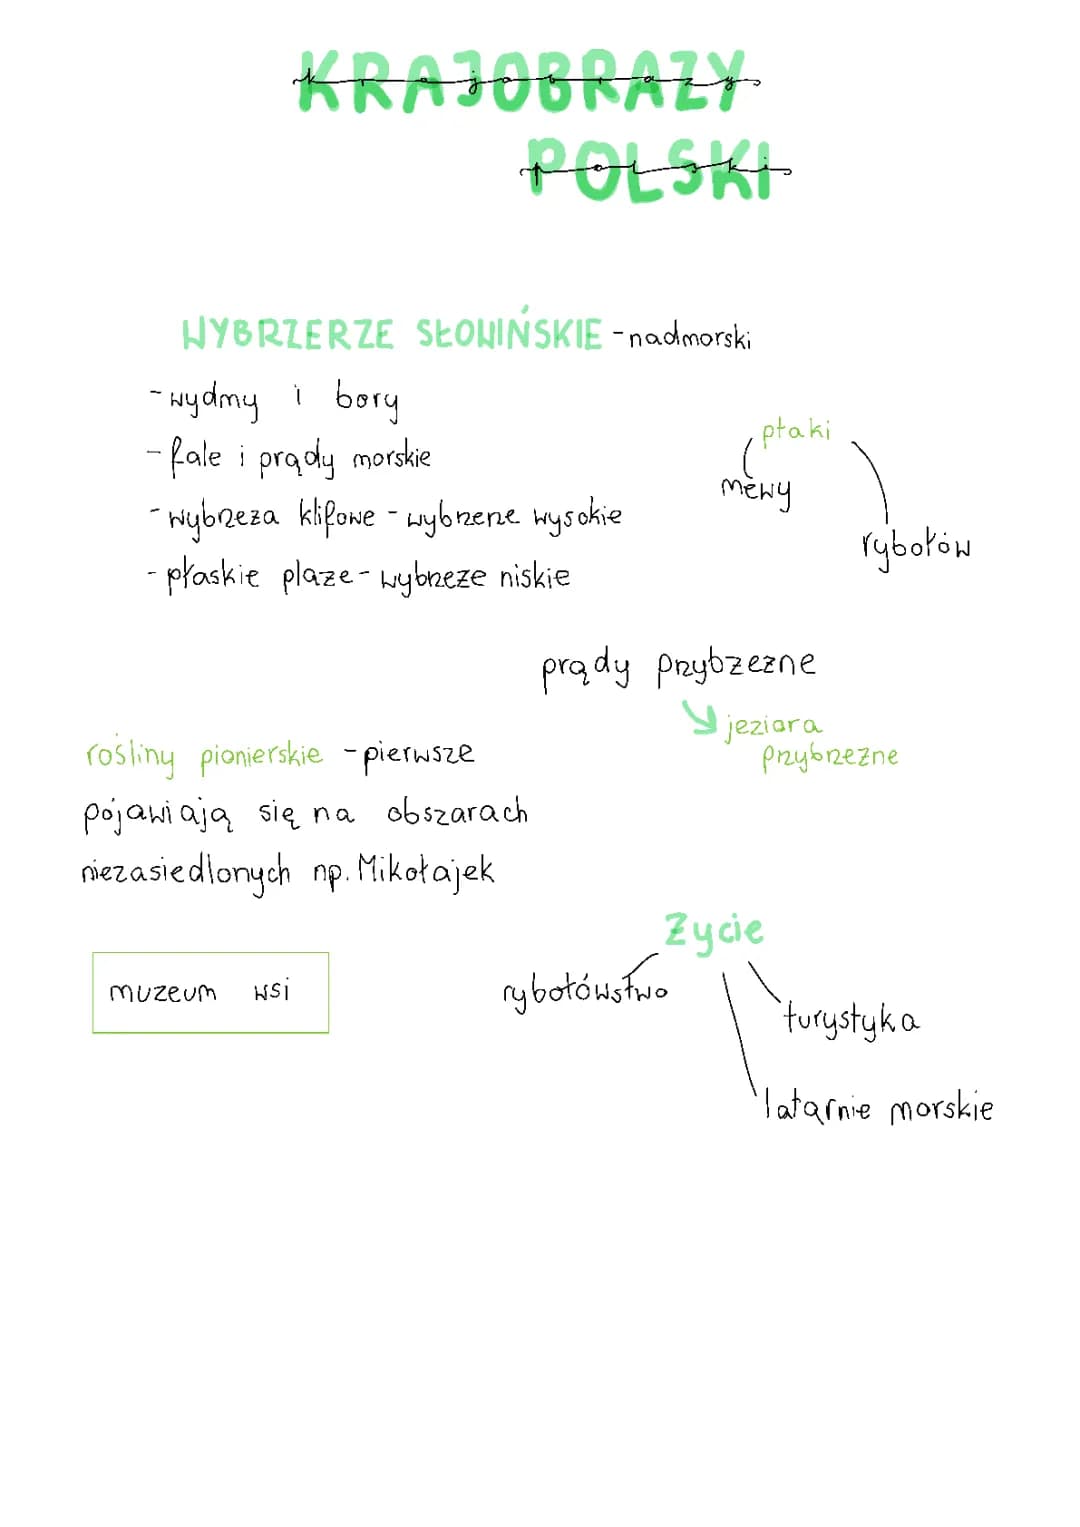 KRAJOBRAZY
krajobrazy
POLSKI
polski
WYBRZERZE SŁOWIŃSKIE - nadmorski
- wydmy i bory
- fale i prądy morskie
- wybrzeża klifowe - wybrzerze wysokie
- płaskie plaże - wybrzeże niskie
ptaki
mewy
rybołów
prądy przybzeżne
jeziora
przybrzeżne
rośliny pionierskie - pierwsze
pojawiają się na obszarach
niezasiedlonych np. Mikołajek
Życie
muzeum wsi
rybołówstwo
turystyka
latarnie morskie